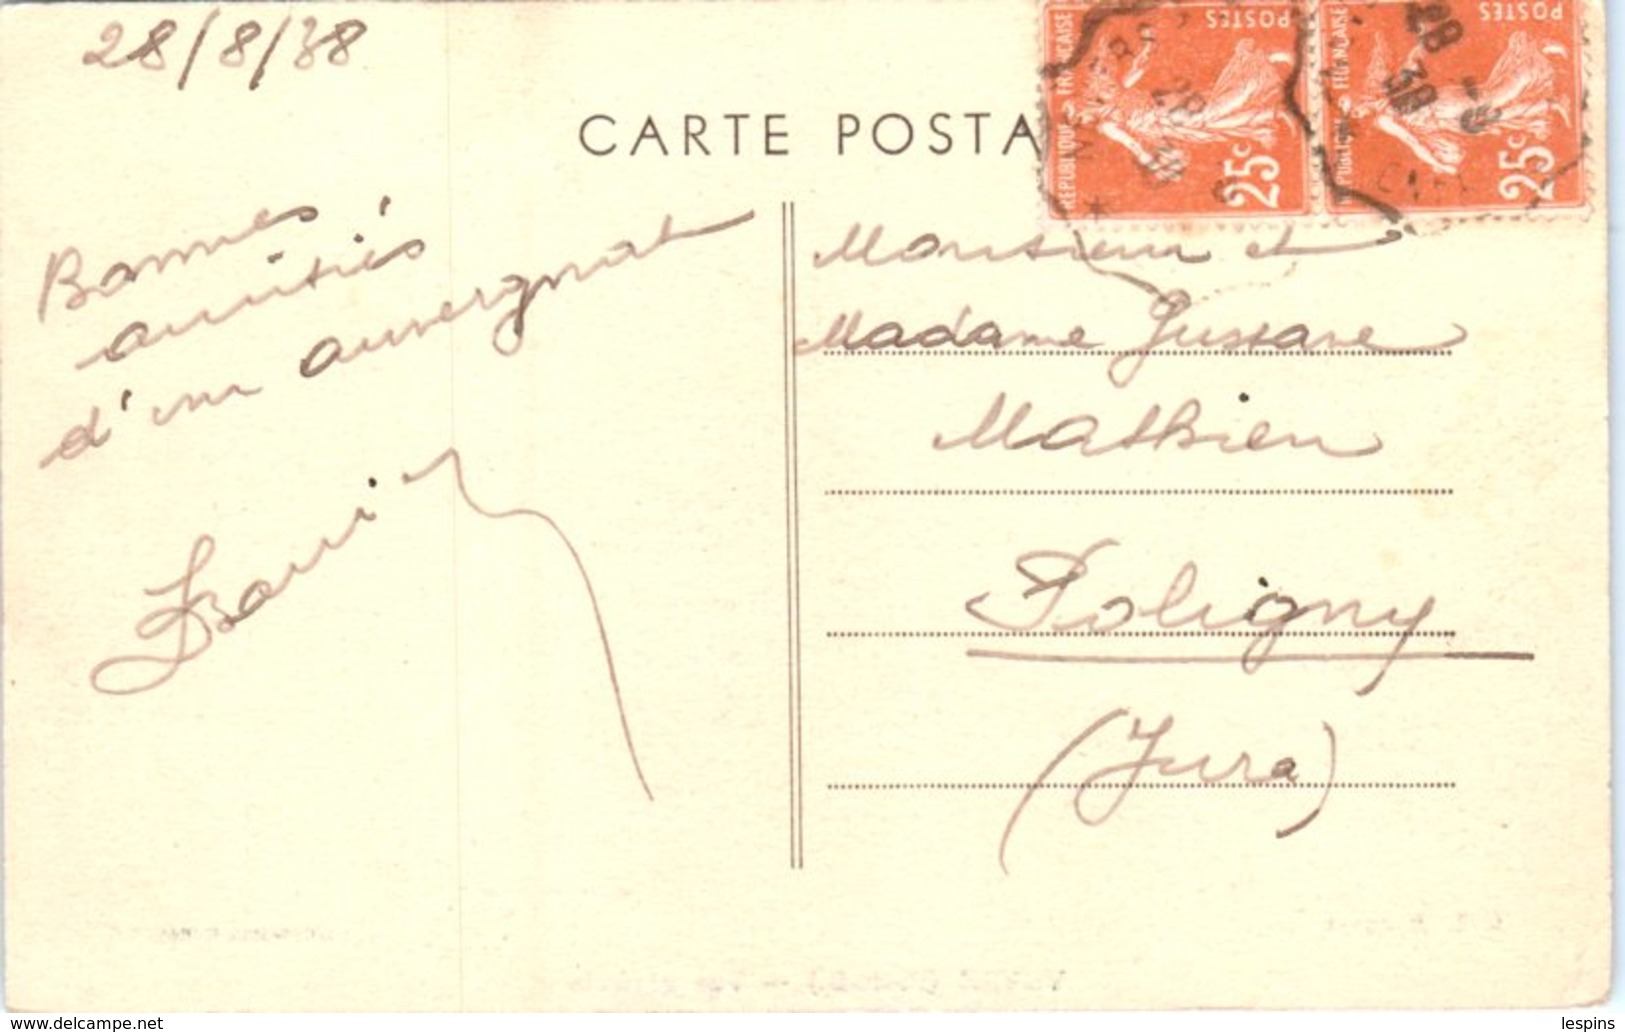 28/8/38
CARTE POSTA
POSTES
RÉPUBLIQUE FRANÇAISE
25c
POSTES
PUBLIQUE FRANÇAISE
25c
28
38
28
38
Bonnes
amitiés
d'un auvergnat
Monsieur et
Madame Gustave
Mathieu
Poligny
(Jura)
www.delcampe.net
lespins